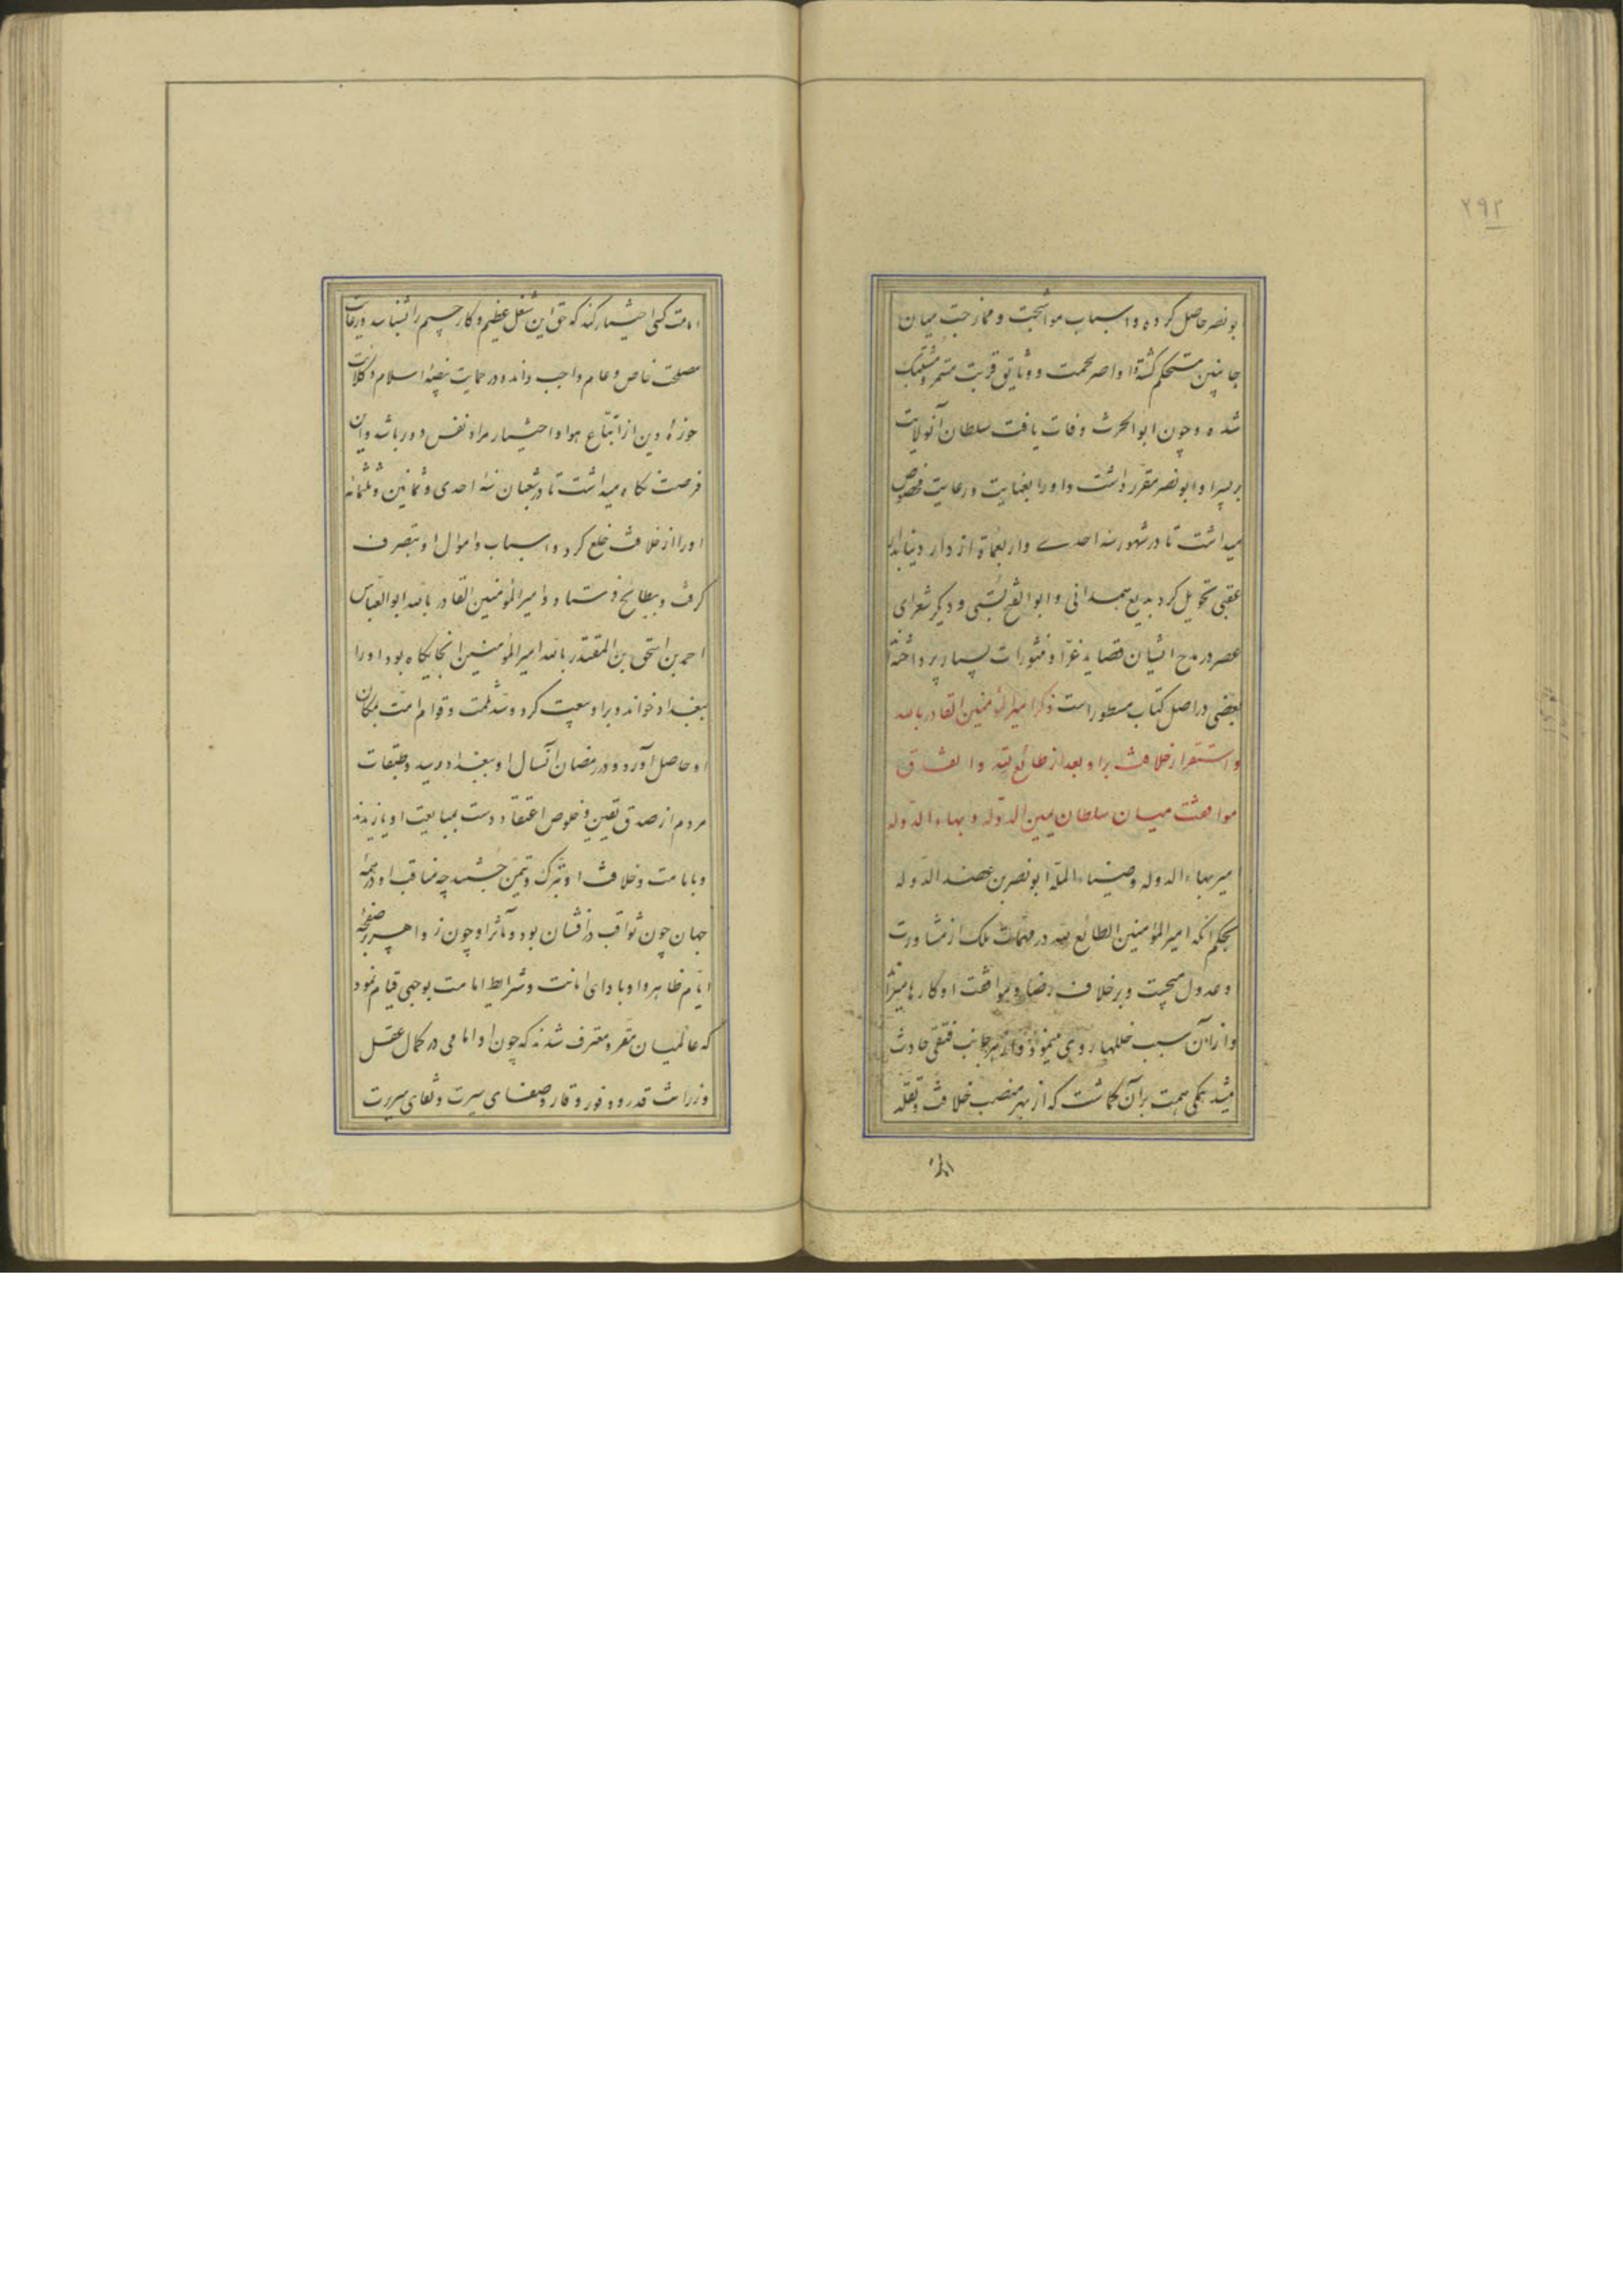 ۲۹۲
بونصر حاصل کرده و اسباب مواشجت و ممازجت میان
جانبین مستحکم کشته و اواصر لحمت و وثایق قربت مستمر و مشتبک
شده و چون ابو الحرث وفات یافت سلطان آنولایت
بر پسر او ابو نصر مقرر داشت و او را بعنایت و رعایت مخصوص
میداشت تا در شهور سنه احدی و اربعمائة از دار دنیا بدار
عقبی تحویل کرد بدیع همدانی و ابو الفتح بستی و دیکر شعرای
عصر در مدح ایشان قصاید غرّا و منثورات بسیار پرداخته‌اند
بعضی در اصل کتاب مسطور است ذکر امیر المؤمنین القادر بالله
و استقرار خلافت برا و بعد از طائع لله و اتفاق
موافقت میان سلطان یمین الدوله و بهاء الدوله
میر بهاء الدوله و ضیاء المله ابو نصر بن عضد الدوله
بحکم انکه امیر المؤمنین الطائع لله در مهمات ملک از مشاورت
و عدول میجست و بر خلاف رضا و موافقت او کارها میراند
و از آن سبب خللها روی مینمود و از هر جانب فتقی حادث
میشد همکی همت بر آن کماشت که از بهر منصب خلافت و تقلد
امامت کسی اختیار کند که حق این شغل عظیم و کار جسیم را بشناسد و رعایت
مصلحت خاص و عام واجب داند و در حمایت بیضهٔ اسلام و کلائت
حوزهٔ دین از اتباع هوا و اختیار مراد نفس دور باشد و ان
فرصت نکاه میداشت تا در شعبان سنه احدی و ثمانین و ثلثمائه
او را از خلافت خلع کرد و اسباب و اموال او بتصرف
کرفت و ببطائح فرستاد و امیر المؤمنین القادر بالله ابو العباس
احمد بن اسحق بن المقتدر بالله امیر المؤمنین انجایکاه بود او را
ببغداد خواند و برا و بیعت کرد و سد ثلمت و قوام امت بمکان
او حاصل آورد و در رمضان آنسال او ببغداد رسید و طبقات
مردم از صدق یقین و خلوص اعتقاد دست بمبایعت او یازیدند
و بامامت و خلافت او تبرک و تیمّن جستند چه مناقب او در همه
جهان چون ثواقب درافشان بود و مآثر او چون زواهر بر صفحهٔ
ایام ظاهر و او با دای امانت و شرایط امامت بوجهی قیام نمود
که عالمیان مقر و معترف شدند که چون او امامی در کمال عقل
و رزانت قدر و وفور وقار و صفای سیرت و نقای سریرت